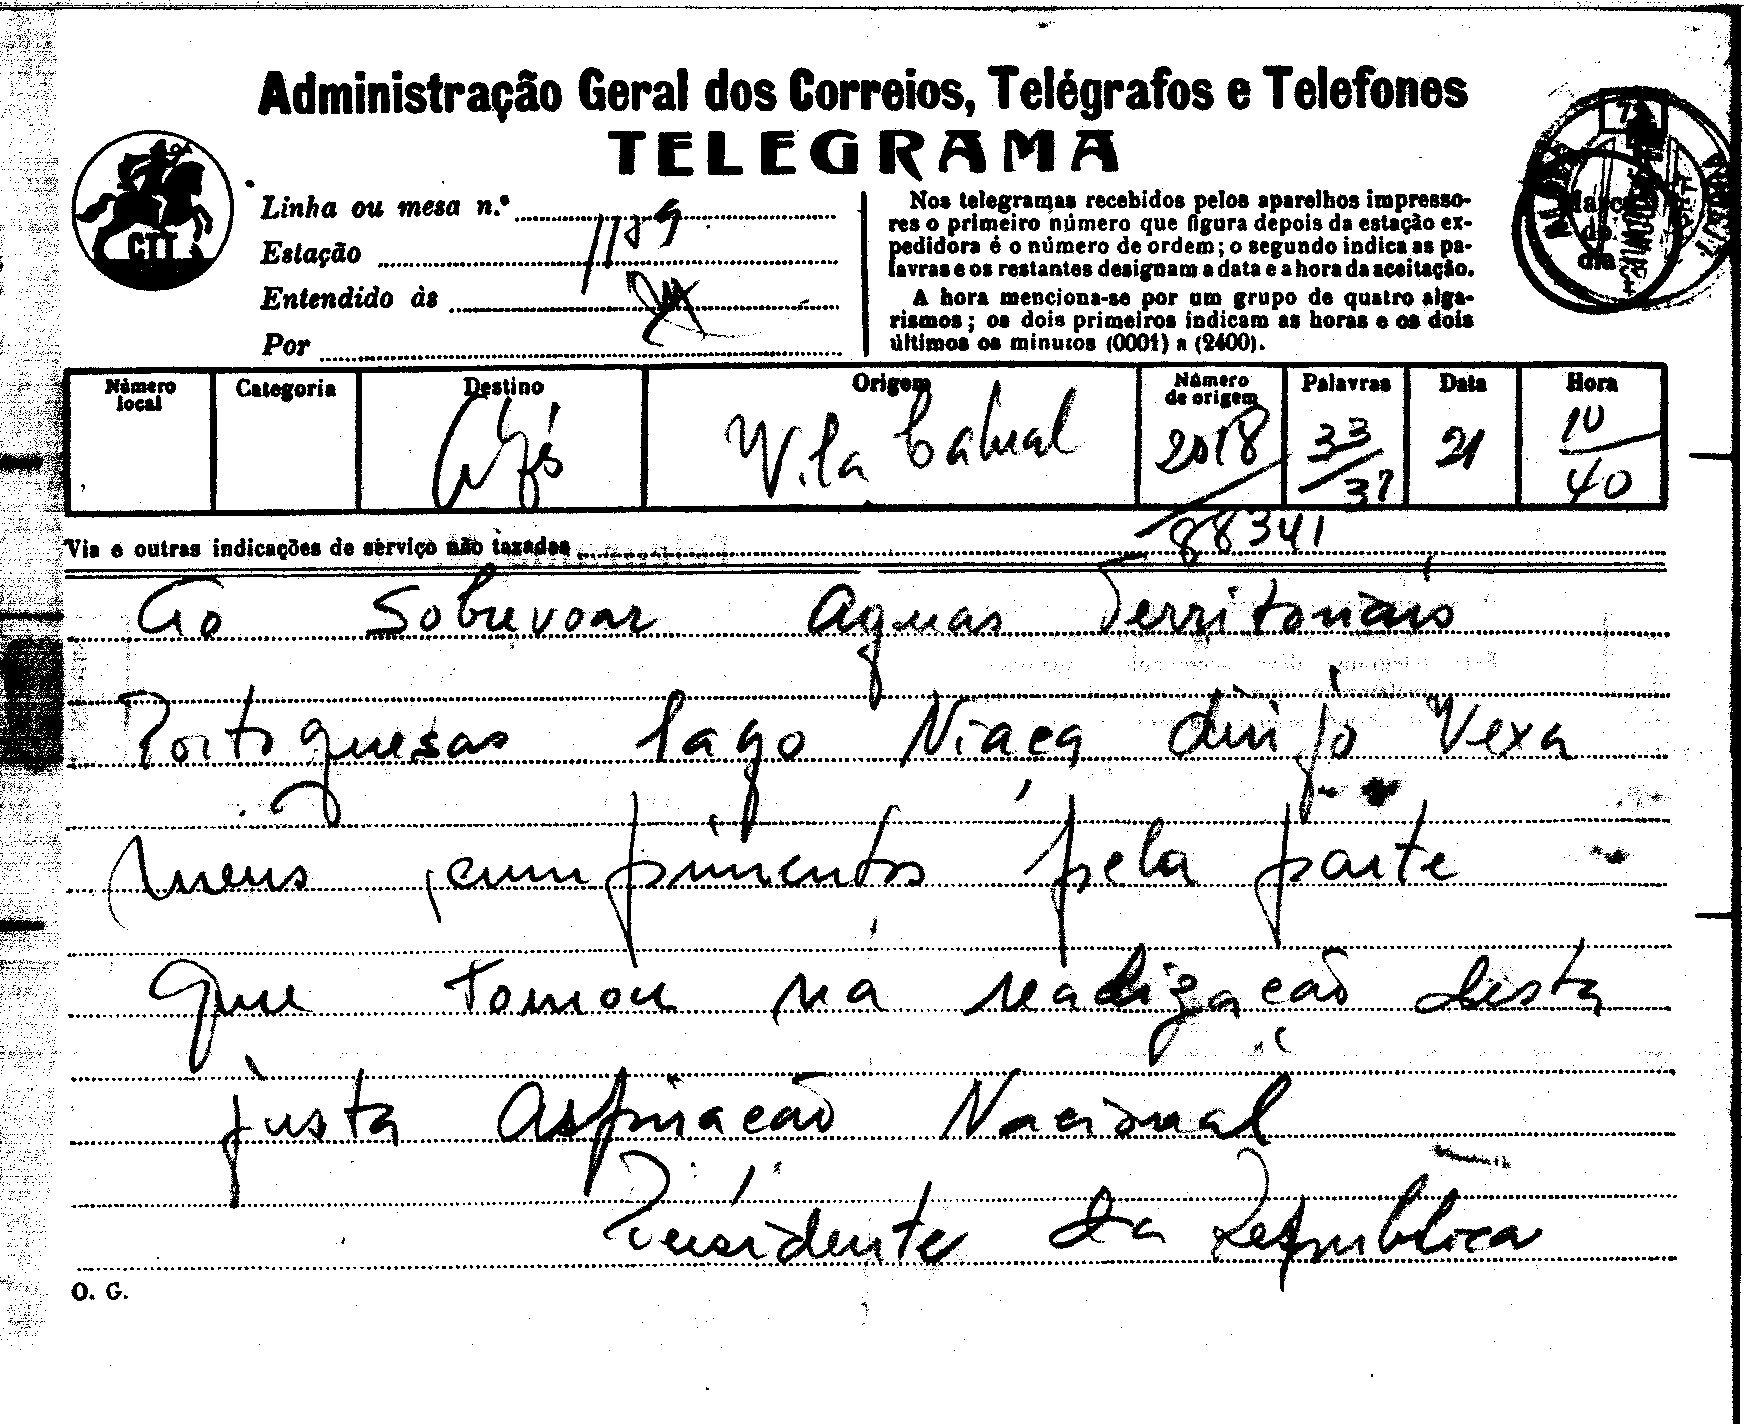 Administração Geral dos Correios, Telégrafos e Telefones
TELEGRAMA
CTT
Linha ou mesa n.º
Estação
Entendido às
Por
Nos telegramas recebidos pelos aparelhos impresso-
res o primeiro número que figura depois da estação ex-
pedidora é o número de ordem; o segundo indica as pa-
lavras e os restantes designam a data e a hora da aceitação.
A hora menciona-se por um grupo de quatro alga-
rismos; os dois primeiros indicam as horas e os dois
últimos os minutos (0001) a (2400).
Marca
do
dia
Número local Categoria Destino Origem Número de origem Palavras Data Hora
Vila Cabral 2018 33/37 21 10/40
88341
Via e outras indicações de serviço não taxadas
Ao Sobrevoar Aguas Territoriais
Portuguesas lago Niaça dirijo Vexa
meus cumprimentos pela parte
que tomou na realização desta
justa Aspiração Nacional
Presidente da Republica
O. G.